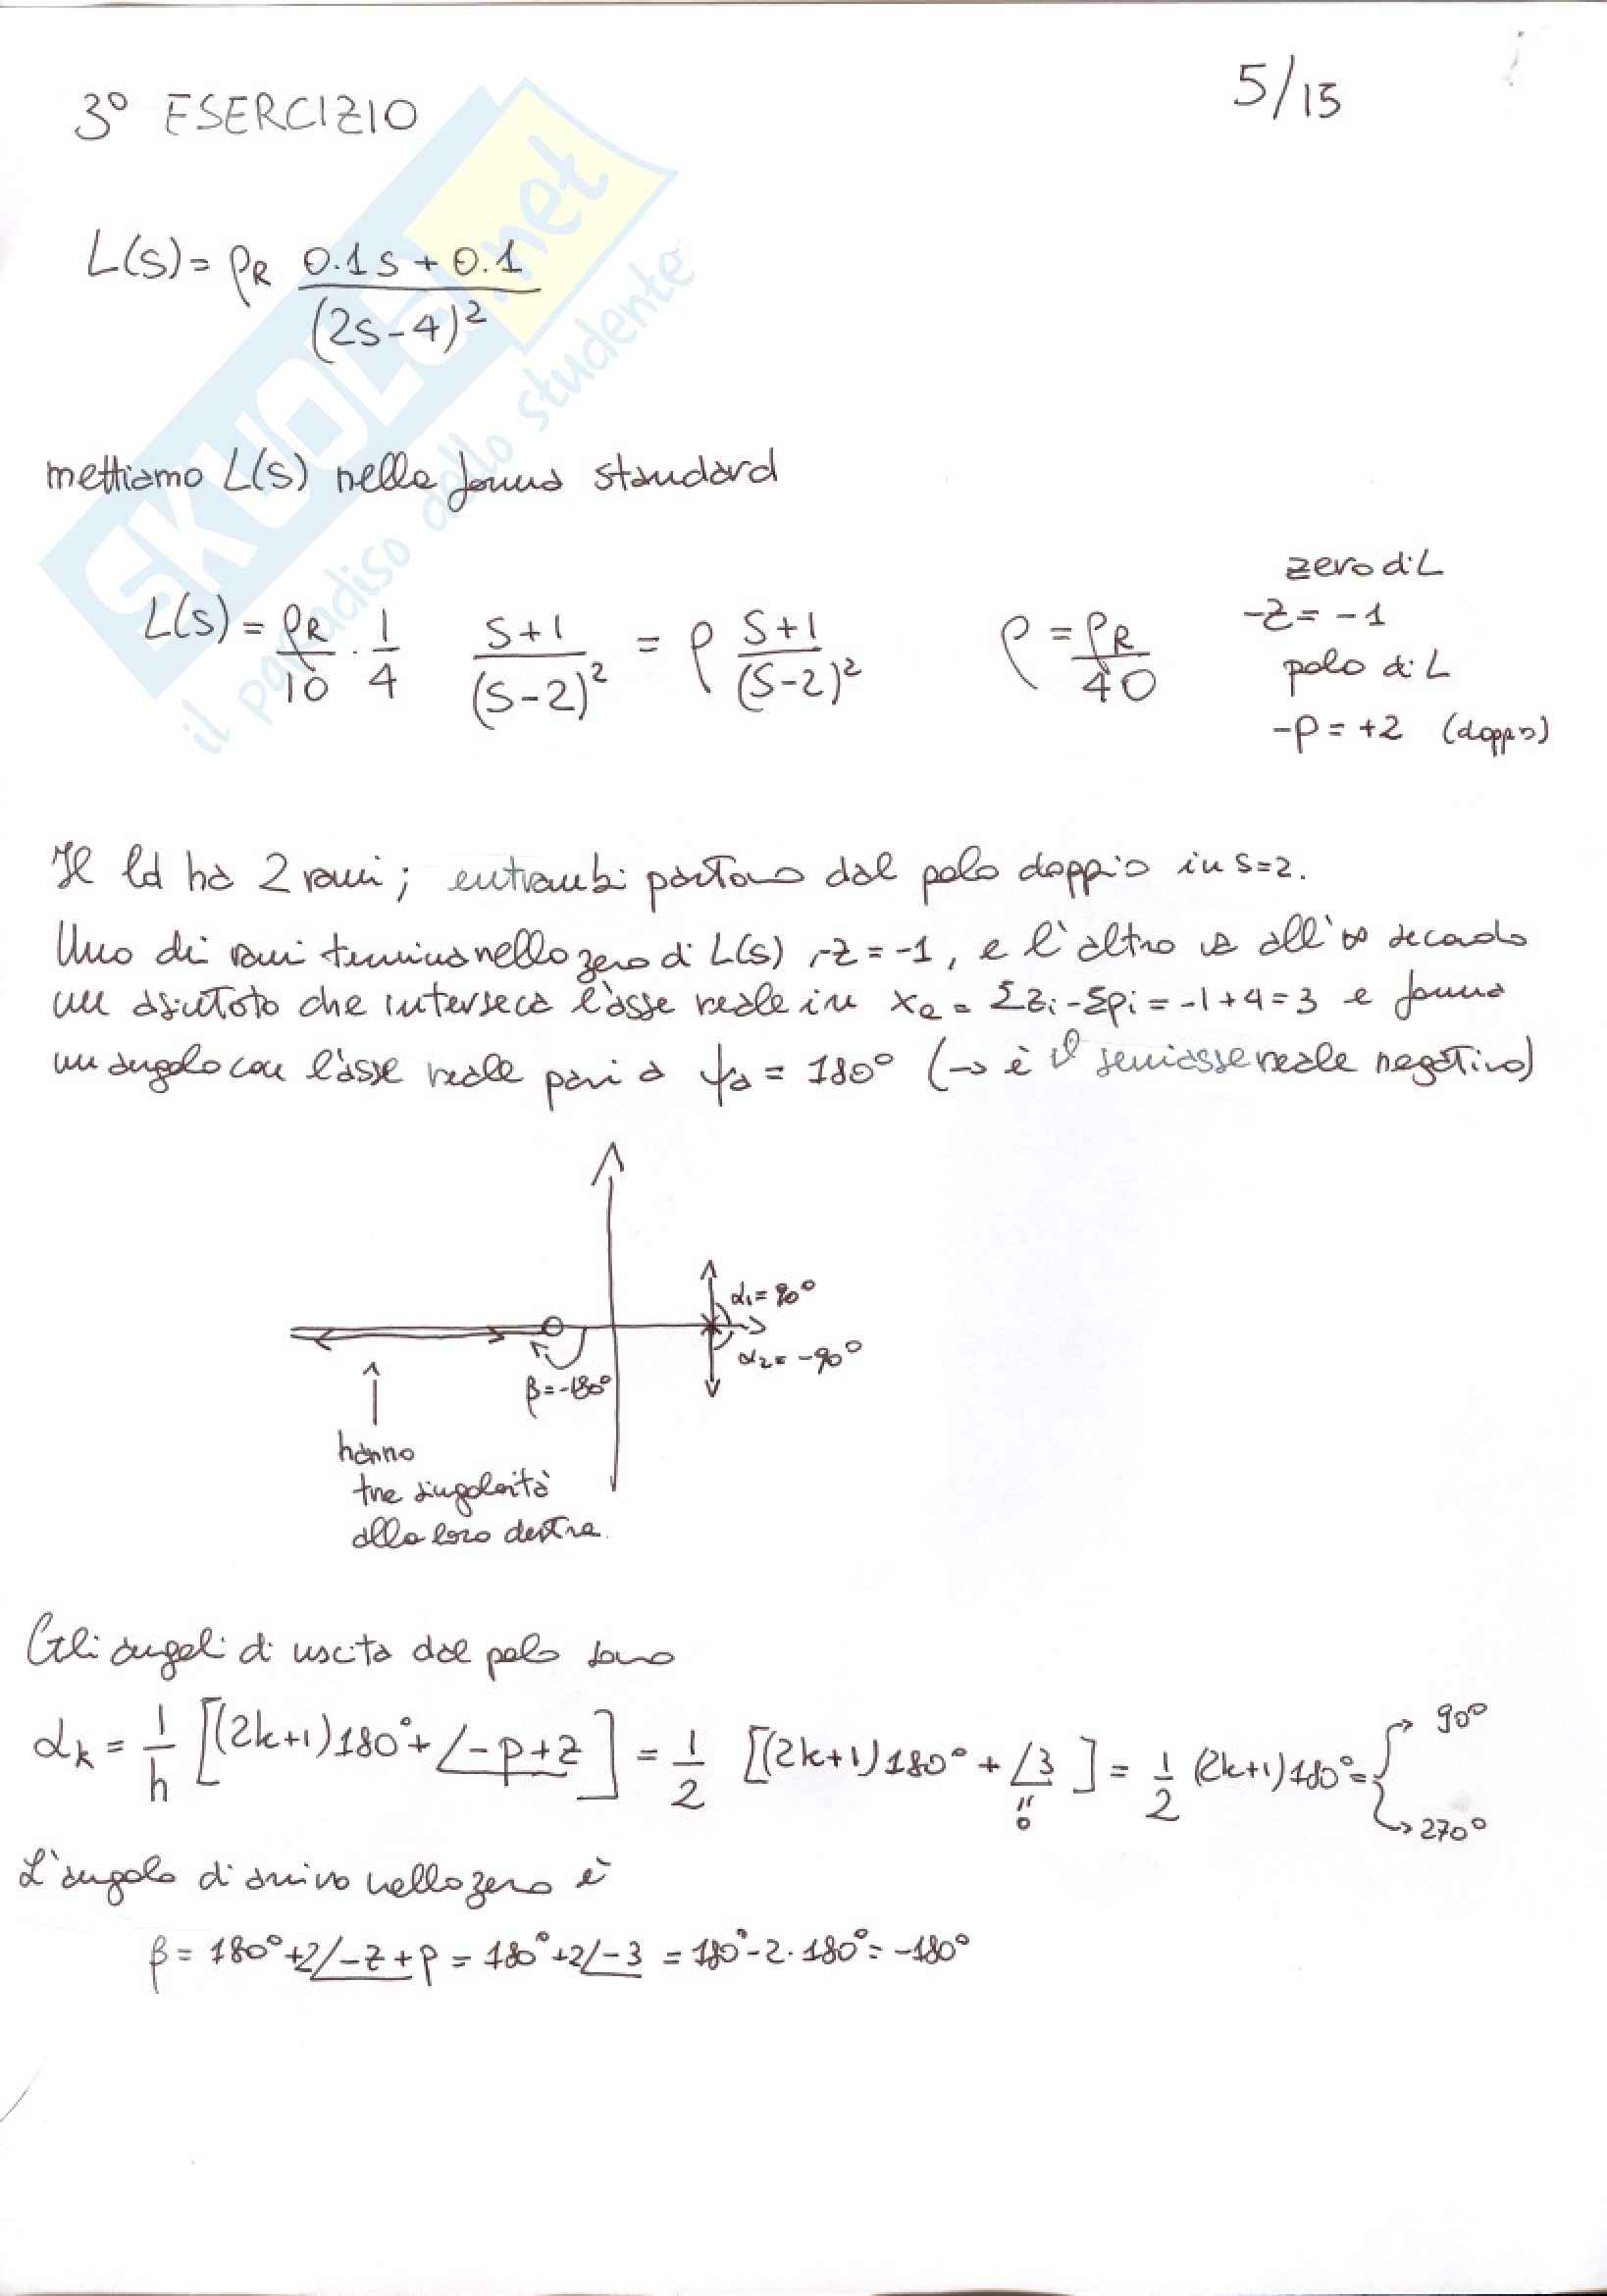 5/15
3° ESERCIZIO
L(s) = ρR (0.1s + 0.1) / (2s-4)²
mettiamo L(s) nella forma standard
L(s) = ρR/10 · 1/4 (s+1)/(s-2)² = ρ (s+1)/(s-2)² ρ = ρR/40
zero di L
-z = -1
polo di L
-p = +2 (doppio)
Il ld ha 2 rami; entrambi partono dal polo doppio in s=2.
Uno dei rami termina nello zero di L(s), -z = -1, e l'altro va all'∞ secondo
un asintoto che interseca l'asse reale in xa = Σzi - Σpi = -1+4 = 3 e forma
un angolo con l'asse reale pari a ψa = 180° (→ è il semiasse reale negativo)
α1 = 90°
α2 = -90°
β = -180°
hanno
tre singolarità
alla loro destra.
Gli angoli di uscita dal polo sono
αk = 1/h [(2k+1)180° + ∠-p+z] = 1/2 [(2k+1)180° + ∠3] = 1/2 (2k+1)180° = → 90°
" 0
→ 270°
L'angolo di arrivo nello zero è
β = 180° + 2∠-z+p = 180° + 2∠-3 = 180° - 2·180° = -180°
SKUOLA.net
il paradiso dello studente